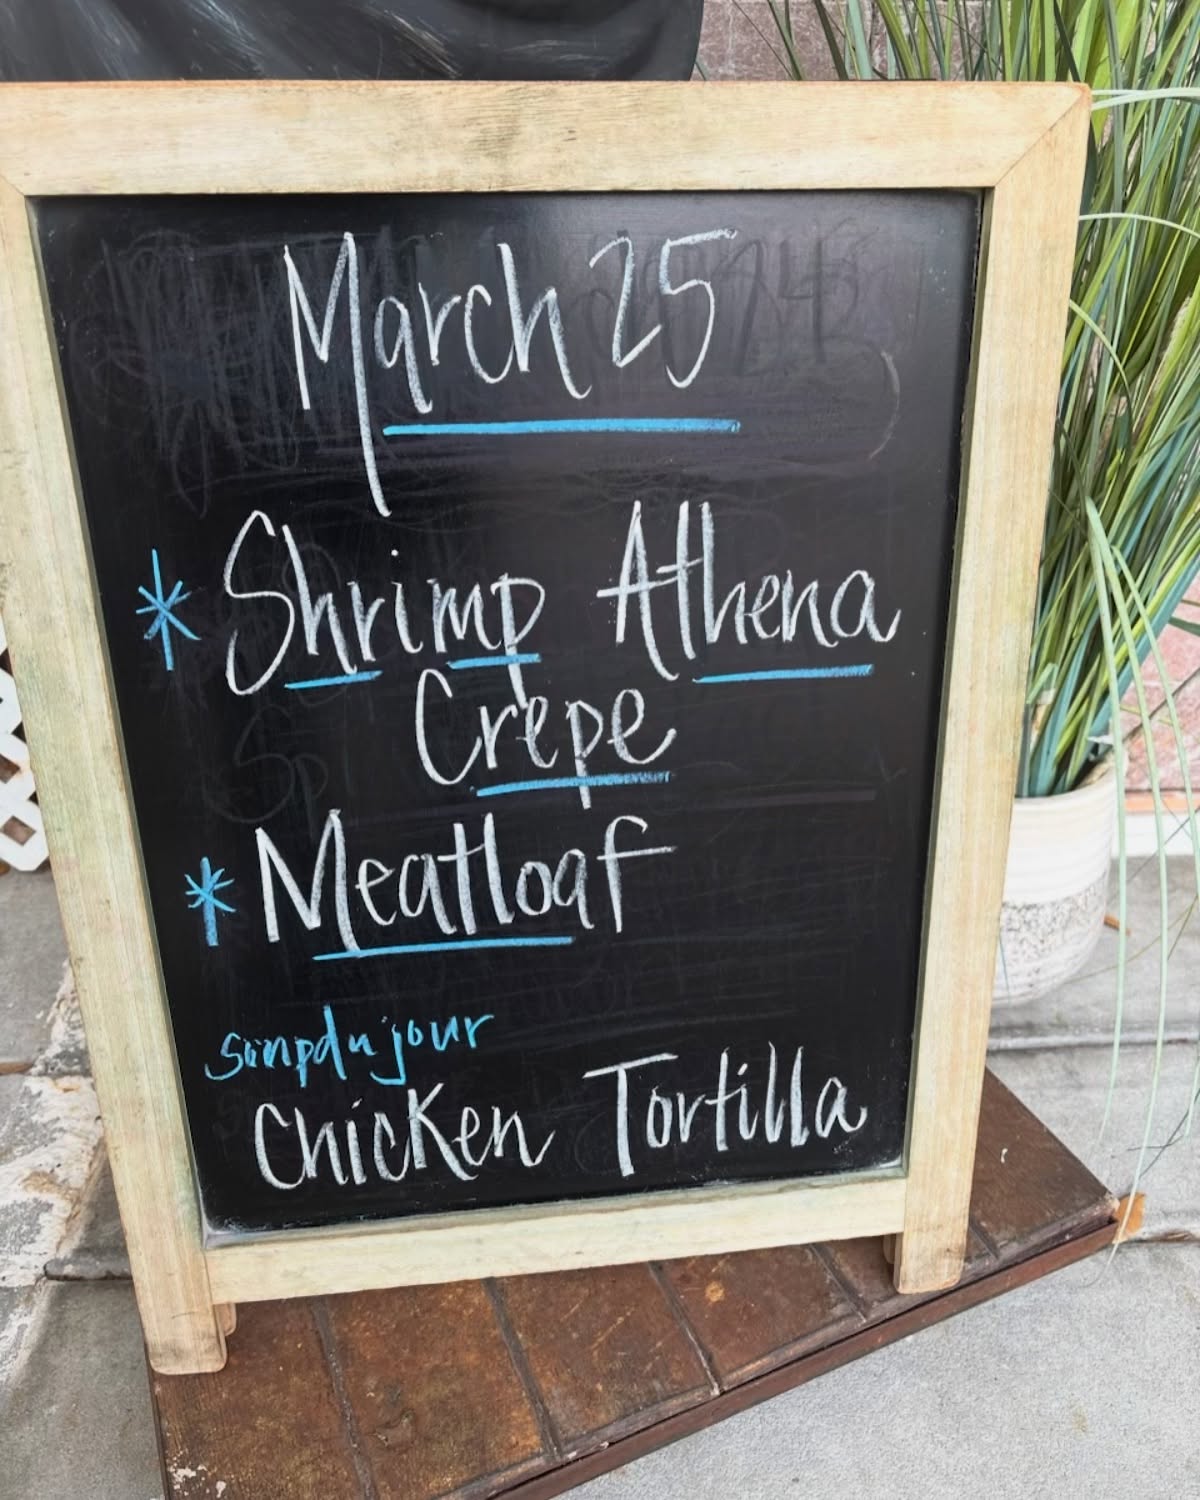 March 25
* Shrimp Athena
Crepe
* Meatloaf
soup du jour
Chicken Tortilla